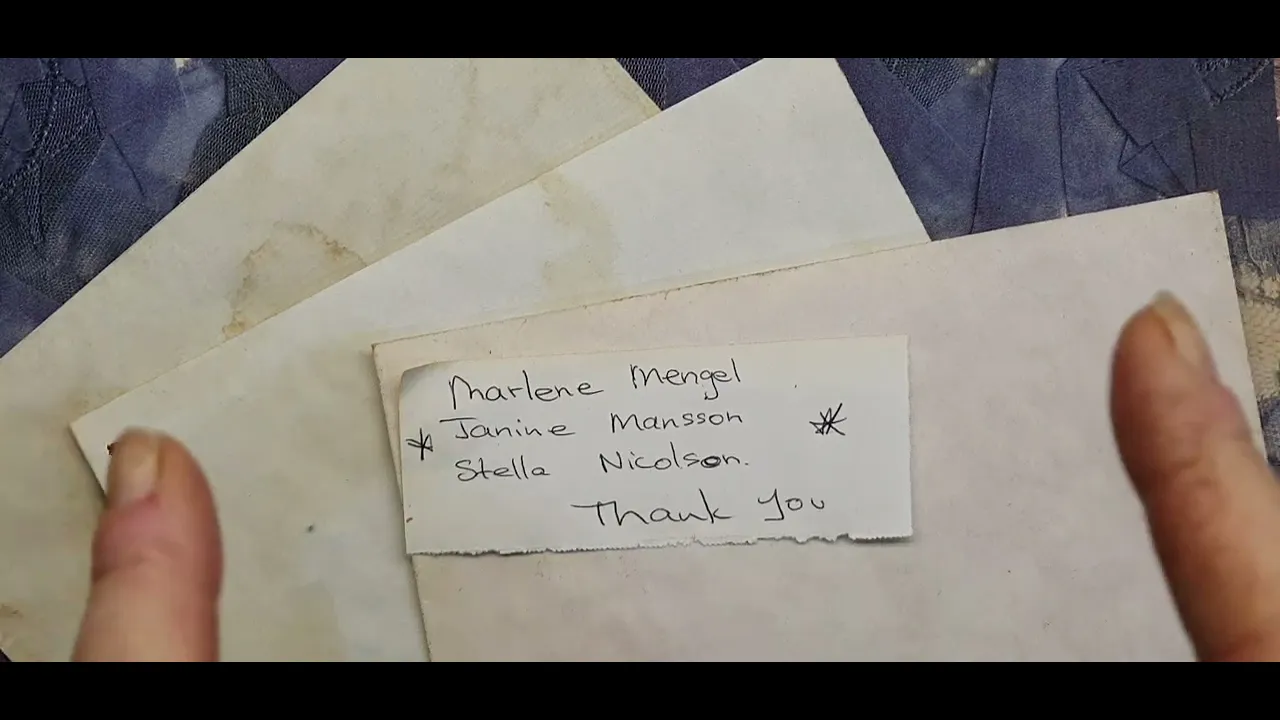 Marlene Mengel
* Janine Mansson *
Stella Nicolson.
Thank You